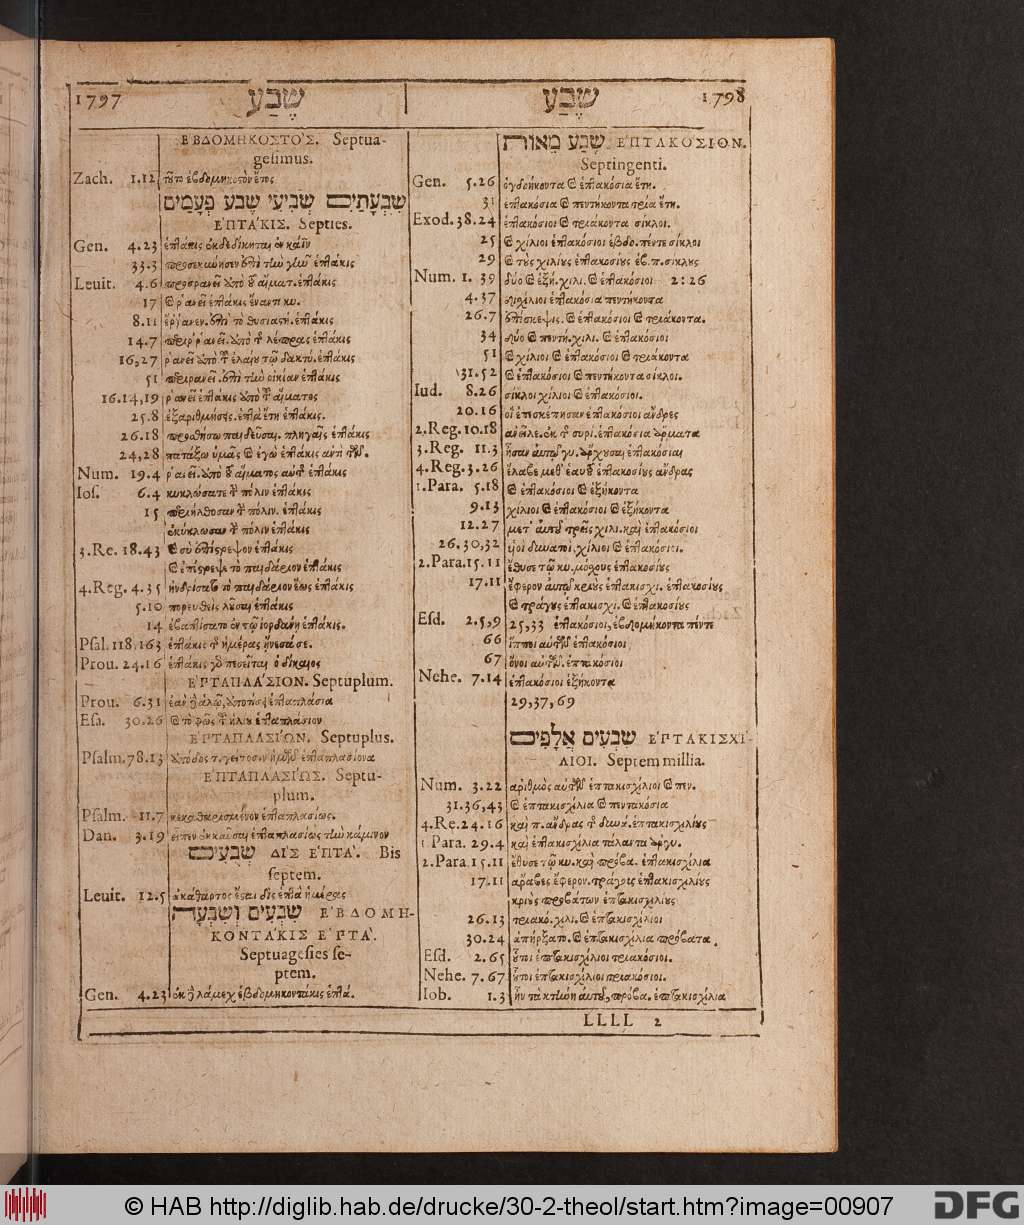 1797 שֶׁבַע
ΕΒΔΟΜΗΚΟΣΤΟΣ. Septua-
gesimus.
Zach. 1.12 τῦτο ἑβδομηκοστὸν ἔτος
שִׁבְעָתַיִם שְׁבִיעִי שֶׁבַע פְּעָמִים
ἙΠΤΆΚΙΣ. Septies.
Gen. 4.23 ἑπτάκις ἐκδεδίκηται ἐκ κάϊν
33.3 προσεκύνησεν ἐπὶ τὴν γῆν ἑπτάκις
Leuit. 4.6 προσρανεῖ ἀπὸ τοῦ αἵματ. ἑπτάκις
17 καὶ ῥανεῖ ἑπτάκις ἔναντι κυ.
8.11 ἔῤῥανεν. ἐπὶ τὸ θυσιαστή. ἑπτάκις
14.7 περιῤῥανεῖ. ἀπὸ τῆς λέπρας ἑπτάκις
16,27 ῥανεῖ ἀπὸ τοῦ ἐλαίου τῷ δακτύ. ἑπτάκις
51 περιρανεῖ. ἐπὶ τὴν οἰκίαν ἑπτάκις
16.14,19 ῥανεῖ ἑπτάκις ἀπὸ τοῦ αἵματος
25.8 ἐξαριθμήσεις. ἑπτὰ ἔτη ἑπτάκις.
26.18 προσθήσω παιδεῦσαι. πληγαῖς ἑπτάκις
24,28 πατάξω ὑμᾶς καὶ ἐγὼ ἑπτάκις ἀντὶ τῶν.
Num. 19.4 ῥανεῖ. ἀπὸ τοῦ αἵματος αὐτῆς ἑπτάκις
Ios. 6.4 κυκλώσατε τὴν πόλιν ἑπτάκις
15 περιήλθοσαν τὴν πόλιν. ἑπτάκις
ἐκύκλωσαν τὴν πόλιν ἑπτάκις
3.Re. 18.43 καὶ σὺ ἐπίστρεψον ἑπτάκις
καὶ ἐπέστρεψε τὸ παιδάριον ἑπτάκις
4.Reg. 4.35 ἠνδρίσατο τὸ παιδάριον ἕως ἑπτάκις
5.10 πορευθεὶς λῦσαι ἑπτάκις
14 ἐβαπτίσατο ἐν τῷ ἰορδάνῃ ἑπτάκις.
Psal. 118,163 ἑπτάκις τῆς ἡμέρας ᾔνεσά σε.
Prou. 24.16 ἑπτάκις γὸ πεσεῖται ὁ δίκαιος
ΕΡΤΑΠΛΆΣΙΟΝ. Septuplum.
Prou. 6.31 ἐὰν δὲ ἁλῷ, ἀποτίσει ἑπταπλάσια
Esa. 30.26 καὶ τὸ φῶς τοῦ ἡλίου ἑπταπλάσιον
ἙΡΤΑΠΛΑΣΊΩΝ. Septuplus.
Psalm. 78.13 ἀπόδος τ. γείτοσιν ἡμῶν ἑπταπλασίονα
ἙΠΤΑΠΛΑΣΊΩΣ. Septu-
plum.
Psalm. 11.7 κεκαθαρισμένον ἑπταπλασίως.
Dan. 3.19 εἶπεν ἐκκαῦσαι ἑπταπλασίως τὴν κάμινον
שְׁבֻעַיִם ΔΊΣ ἘΠΤΆ. Bis
septem.
Leuit. 12.5 ἀκάθαρτος ἔσται δὶς ἑπτὰ ἡμέρας
שִׁבְעִים וְשִׁבְעָה ἙΒΔΟΜΗ-
ΚΟΝΤΆΚΙΣ ἘΡΤΆ.
Septuagesies se-
ptem.
Gen. 4.23 ἐκ δὲ λάμεχ ἑβδομηκοντάκις ἑπτά.
שֶׁבַע 1798
שְׁבַע מֵאוֹת ἙΠΤΑΚΌΣΙΟΝ.
Septingenti.
Gen. 5.26 ὀγδοήκοντα καὶ ἑπτακόσια ἔτη.
31 ἑπτακόσια καὶ πεντήκοντα τρία ἔτη.
Exod. 38.24 ἑπτακόσιοι καὶ τριάκοντα σίκλοι.
25 καὶ χίλιοι ἑπτακόσιοι ἑβδο. πέντε σίκλοι
29 καὶ τοὺς χιλίους ἑπτακοσίους ἑβ. π. σίκλους
Num. 1. 39 δύο καὶ ἑξή. χιλι. καὶ ἑπτακόσιοι 2:26
4.37 δισχίλιοι ἑπτακόσια πεντήκοντα
26.7 ἐπίσκεψις. καὶ ἑπτακόσιοι καὶ τριάκοντα.
34 δύο καὶ πεντή. χιλι. καὶ ἑπτακόσιοι
51 καὶ χίλιοι καὶ ἑπτακόσιοι καὶ τριάκοντα
31.52 καὶ ἑπτακόσιοι καὶ πεντήκοντα σίκλοι.
Iud. 8.26 σίκλοι χίλιοι καὶ ἑπτακόσιοι.
20.16 οἱ ἐπισκέπησαν ἑπτακόσιοι ἄνδρες
2.Reg. 10.18 ἀνεῖλε. ἐκ τῆς συρί. ἑπτακόσια ἅρματα
3.Reg. 11.3 ἦσαν αὐτῷ γυ. ἄρχουσαι ἑπτακόσιαι
4.Reg. 3.26 ἔλαβε μεθ' ἑαυτοῦ ἑπτακοσίους ἄνδρας
1.Para. 5.18 καὶ ἑπτακόσιοι καὶ ἑξήκοντα
9.13 χίλιοι καὶ ἑπτακόσιοι καὶ ἑξήκοντα
12.27 μετ' αὐτοῦ τρεῖς χιλι. καὶ ἑπτακόσιοι
26.30,32 υἱοὶ δυνατοὶ. χίλιοι καὶ ἑπτακόσιοι.
2.Para. 15.11 ἔθυσε τῷ κυ. μόσχους ἑπτακοσίους
17.11 ἔφερον αὐτῷ κριοὺς ἑπτακισχι. ἑπτακοσίους
καὶ τράγους ἑπτακισχι. καὶ ἑπτακοσίους
Esd. 2.5,9 25,33 ἑπτακόσιοι, ἑβδομήκοντα πέντε
66 ἵπποι αὐτῶν ἑπτακόσιοι
67 ὄνοι αὐτῶν. ἑπτακόσιοι
Nehe. 7.14 ἑπτακόσιοι ἑξήκοντα
29,37,69
שִׁבְעִים אֲלָפִים ἙΡΤΑΚΙΣΧΊ-
ΛΙΟΙ. Septem millia.
Num. 3.22 ἀριθμὸς αὐτῶν ἑπτακισχίλιοι καὶ πεν.
31.36,43 καὶ ἑπτακισχίλια καὶ πεντακόσια
4.Re. 24.16 καὶ π. ἄνδρας τῆς δυνά. ἑπτακισχιλίους
1.Para. 29.4 καὶ ἑπτακισχίλια τάλαντα ἀργυ.
2.Para. 15.11 ἔθυσε τῷ κυ. καὶ πρόβα. ἑπτακισχίλια
17.11 ἄραβες ἔφερον. τράγους ἑπτακισχιλίους
κριοὺς προβάτων ἑπτακισχιλίους
26.13 τριακό. χιλι. καὶ ἑπτακισχίλιοι
30.24 ἀπήρξατο. καὶ ἑπτακισχίλια πρόβατα
Esd. 2.65 οὗτοι ἑπτακισχίλιοι τριακόσιοι.
Nehe. 7.67 οὗτοι ἑπτακισχίλιοι τριακόσιοι.
Iob. 1.3 ἦν τὰ κτήνη αὐτοῦ, πρόβα. ἑπτακισχίλια
LLLL 2
© HAB http://diglib.hab.de/drucke/30-2-theol/start.htm?image=00907
DFG